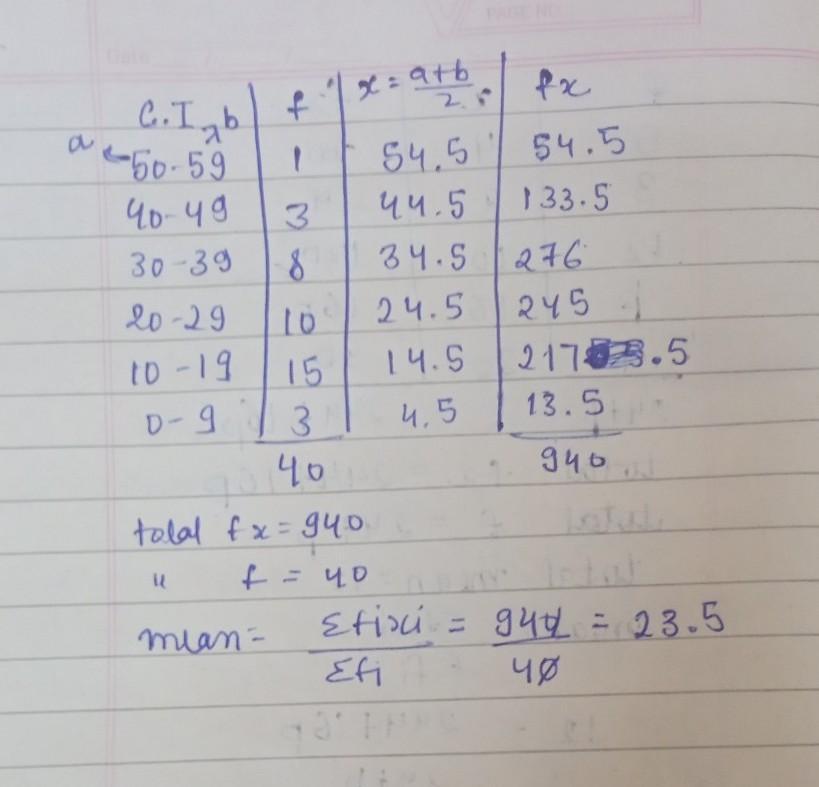 PAGE NO.
Date / /
C.I b f x = a+b/2 fx
a 50-59 1 54.5 54.5
40-49 3 44.5 133.5
30-39 8 34.5 276
20-29 10 24.5 245
10-19 15 14.5 217.5
0-9 3 4.5 13.5
40 940
total fx = 940
" f = 40
mean = Σfixi/Σfi = 940/40 = 23.5